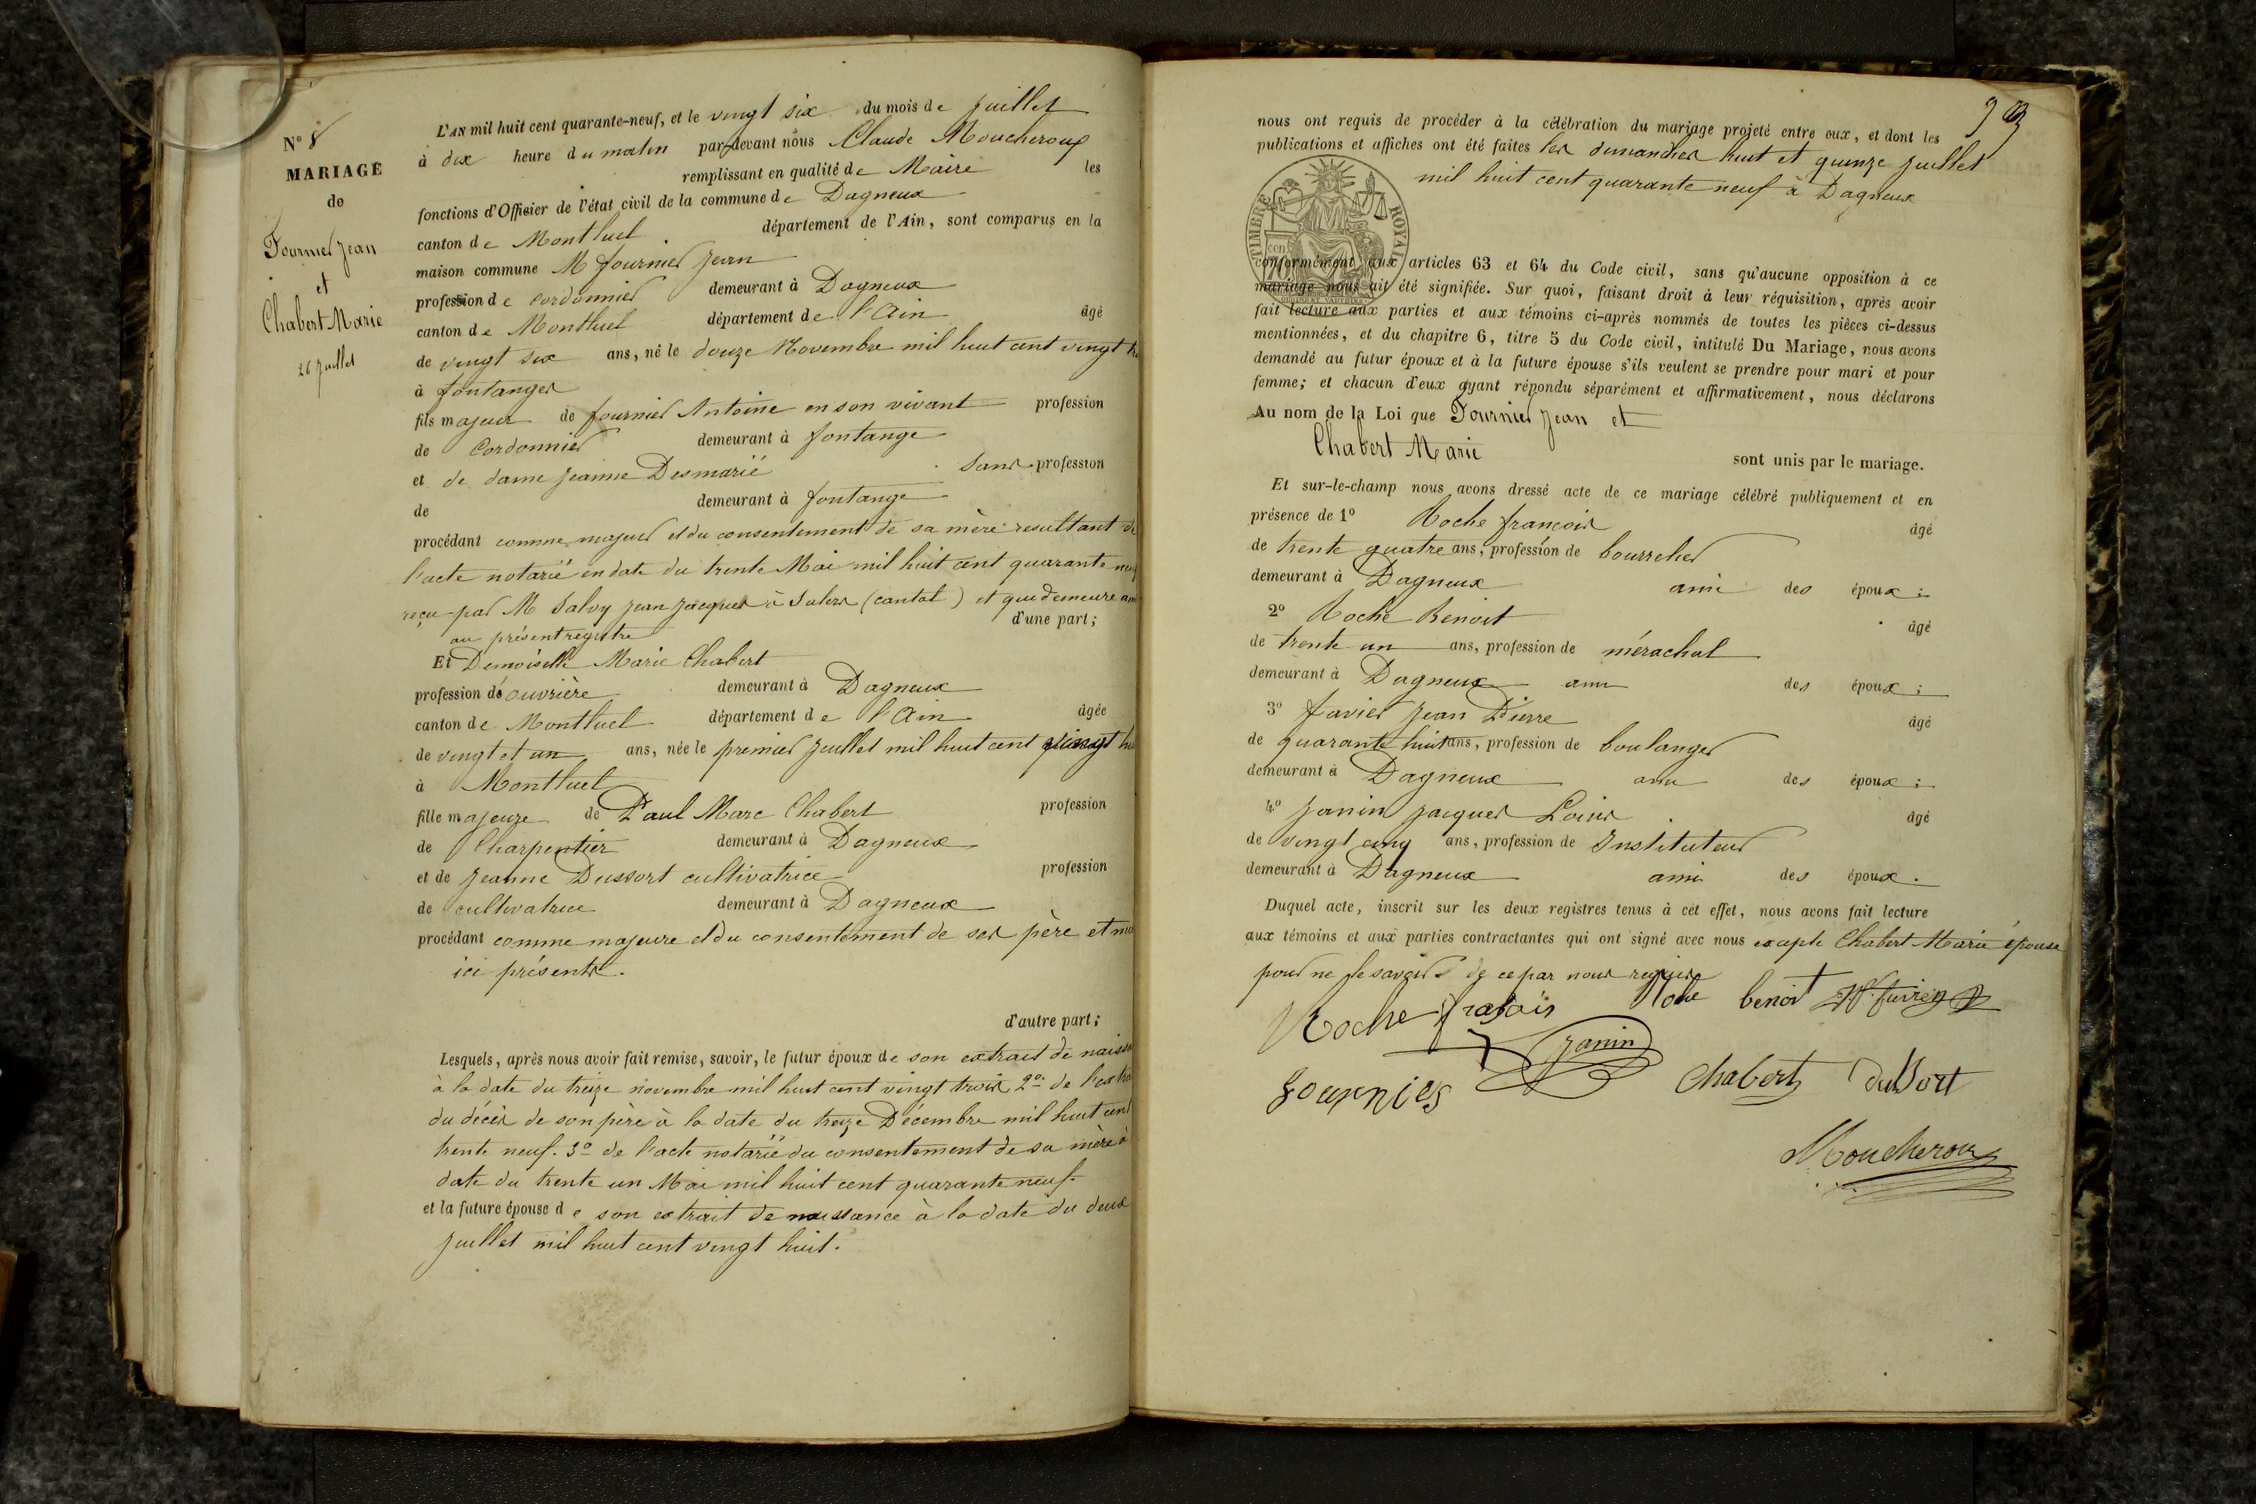 N° 8
MARIAGE
de
Fournier Jean
et
Chabert Marie
26 Juillet
L'AN mil huit cent quarante-neuf, et le vingt six du mois de Juillet
à dix heure du matin par-devant nous Claude Moucheroux
remplissant en qualité de Maire les
fonctions d'Officier de l'état civil de la commune de Dagneux
canton de Montluel département de l'Ain, sont comparus en la
maison commune M fournier Jean
profession de cordonnier demeurant à Dagneux
canton de Montluel département de l'Ain âgé
de vingt six ans, né le douze Novembre mil huit cent vingt
à fontanges
fils majeur de fournier Antoine en son vivant profession
de Cordonnier demeurant à fontange
et de dame Jeanne Desmarié Sans profession
de demeurant à fontange
procédant comme majeur et du consentement de sa mère resultant de
l'acte notarié en date du trente Mai mil huit cent quarante neuf
reçu par M Salvy Jean Jacques à Salers (cantal) et que demeure
au présent registre d'une part;
Et Demoiselle Marie Chabert
profession d'ouvrière demeurant à Dagneux
canton de Montluel département de l'Ain âgée
de vingt et un ans, née le premier Juillet mil huit cent vingt
à Montluel
fille majeure de Paul Marc Chabert profession
de Charpentier demeurant à Dagneux
et de Jeanne Dussort cultivatrice profession
de cultivatrice demeurant à Dagneux
procédant comme majeure et du consentement de ses père et
ici présents.
d'autre part;
Lesquels, après nous avoir fait remise, savoir, le futur époux de son extrait de
à la date du treize novembre mil huit cent vingt trois 2° de
du décès de son père à la date du treize Décembre mil huit cent
trente neuf. 3° de l'acte notarié du consentement de sa mère à
date du trente un Mai mil huit cent quarante neuf.
et la future épouse de son extrait de naissance à la date du deux
Juillet mil huit cent vingt huit.
nous ont requis de procéder à la célébration du mariage projeté entre eux, et dont les
publications et affiches ont été faites les dimanches huit et quinze Juillet
mil huit cent quarante neuf à Dagneux
TIMBRE ROYAL
conformément aux articles 63 et 64 du Code civil, sans qu'aucune opposition à ce
mariage nous ait été signifiée. Sur quoi, faisant droit à leur réquisition, après avoir
fait lecture aux parties et aux témoins ci-après nommés de toutes les pièces ci-dessus
mentionnées, et du chapitre 6, titre 5 du Code civil, intitulé Du Mariage, nous avons
demandé au futur époux et à la future épouse s'ils veulent se prendre pour mari et pour
femme; et chacun d'eux ayant répondu séparément et affirmativement, nous déclarons
Au nom de la Loi que Fournier Jean et
Chabert Marie sont unis par le mariage.
Et sur-le-champ nous avons dressé acte de ce mariage célébré publiquement et en
présence de 1° Roche françois âgé
de trente quatre ans, profession de bourrelier
demeurant à Dagneux ami des époux;
2° Roche Benoit âgé
de trente un ans, profession de mérachal
demeurant à Dagneux ami des époux;
3° favier Jean Pierre âgé
de quarante huit ans, profession de boulanger
demeurant à Dagneux ami des époux;
4° Janin Jacques Loius âgé
de vingt cinq ans, profession de Instituteur
demeurant à Dagneux ami des époux.
Duquel acte, inscrit sur les deux registres tenus à cet effet, nous avons fait lecture
aux témoins et aux parties contractantes qui ont signé avec nous excepte Chabert Marie épouse
pour ne le savoir de ce par nous requise
Roche Roche benoit
Janin
fournier Chabert duSort
Moucheroux